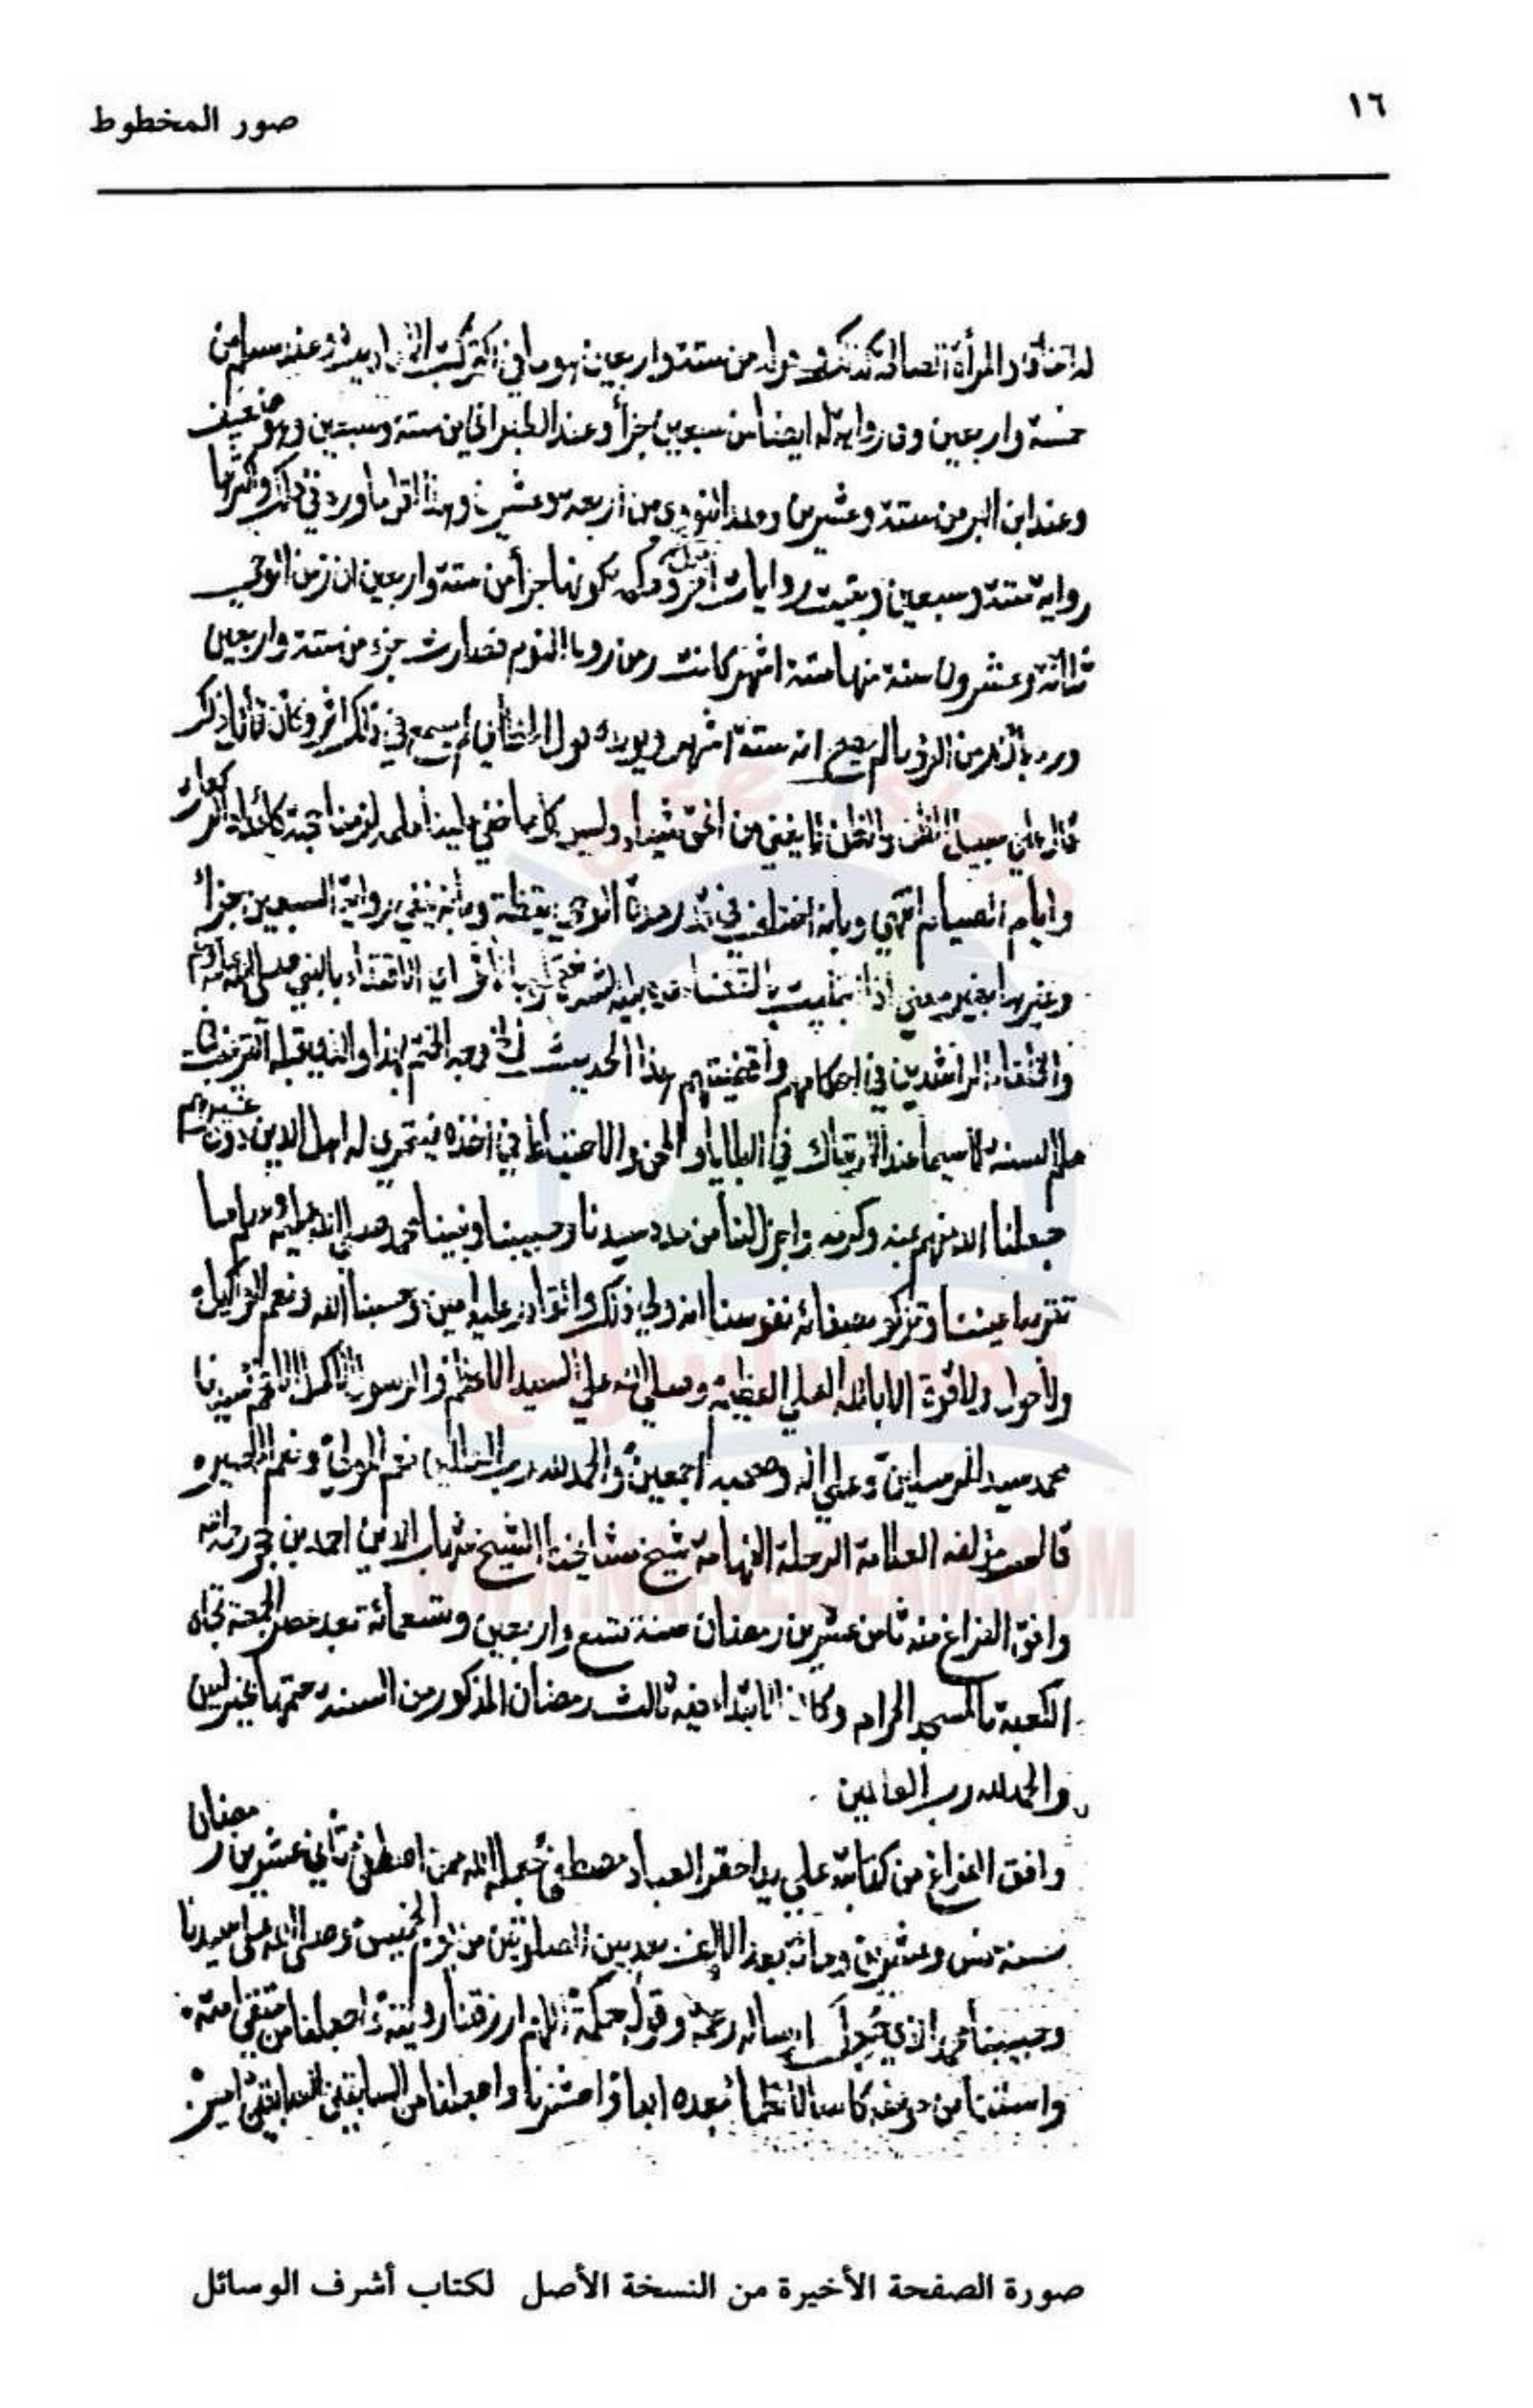 ١٦
صور المخطوط
والمرأة الصالحة كذلك من ستة واربعين هو ما في اكثر كتب وعند مسلم من
خمسة واربعين وفي رواية له ايضا من سبعين جزأ وعند الطبراني من ستة وسبعين وهو ضعيف
وعند ابن البر من ستة وعشرين وعند النووي من اربعة وعشرين وهذا اقل ما ورد في ذلك واكثرها
رواية ستة وسبعين وبقيت روايات اخر كونها جزأ من ستة واربعين ان زمن الوحي
ثلاثة وعشرون سنة منها ستة اشهر كانت زمن رويا النوم فصارت جزء من ستة واربعين
ورد بأن زمن الرويا لم يصح انه ستة اشهر ويويده قول الخطابي لم يسمع في ذلك اثر وكأن قائله ذكر
على سبيل الظن والظن لا يغني من الحق شيئا وليس كل ما خفي علينا علمه لزمنا حجته كأعداد الركعات
وايام الصيام انتهى وبانه اختلف في قدر مدة الوحي يقظة وبأنه ينفي رواية السبعين جزأ
وغيرها بغير معنى اذا ابتليت بالقضاء اي الاقتداء بالنبي صلى الله عليه وسلم
والخلفاء الراشدين في احكامهم واقضيتهم هذا الحديث وجه الختم بهذا والذي قبله الترغيب في
علم السنة لا سيما عند الارتباك في البلايا والمحن والاحتياط في اخذه فيتحرى له اهل الدين دون غيرهم
جعلنا الله منهم بمنه وكرمه واجزل لنا من مدد سيدنا وحبيبنا ونبينا محمد صلى الله عليه وسلم ما
تقر به اعيننا وتزكو بصفائه نفوسنا انه ولي ذلك والقادر عليه امين وحسبنا الله ونعم الوكيل
ولا حول ولا قوة الا بالله العلي العظيم وصلى الله على السيد الاعظم والرسول الاكمل الافخم سيدنا
محمد سيد المرسلين وعلى اله وصحبه اجمعين والحمد لله رب العالمين نعم المولى ونعم النصير
قال مؤلفه العلامة الرحلة الفهامة شيخ مشايخنا الشيخ شهاب الدين احمد بن حجر رحمه الله
وافق الفراغ منه ثامن عشرين رمضان سنة تسع واربعين وتسعمائة بعد عصر الجمعة تجاه
الكعبة بالمسجد الحرام وكان الابتداء فيه ثالث رمضان المذكور من السنة ختمها بخير امين
والحمد لله رب العالمين .
وافق الفراغ من كتابته على يد احقر العباد مصطفى جعله الله ممن اصطفى ثاني عشرين رمضان
سنة وعشرين ومائة بعد الالف بعد بين الصلوتين من يوم الخميس وصلى الله على سيدنا
وحبيبنا محمد الذي ارساله رحمة وقوله حكمة اللهم ارزقنا رؤيته واجعلنا من متقي امته
واسقنا من حوضه كاسا لا نظمأ بعده ابدا واحشرنا واجعلنا من السابقين امين
WWW.NAFSEISLAM.COM
صورة الصفحة الأخيرة من النسخة الأصل لكتاب أشرف الوسائل